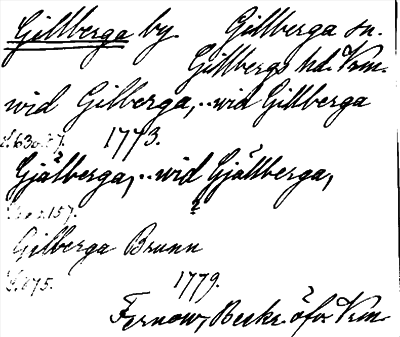 Gillberga by. Gillberga sn.
Gillbergs hd. Vrm.
wid Gilberga, .. wid Gillberga
s. 630. 37. 1773.
Gjälberga, .. wid Gjällberga,
157.
Gilberga Brunn
S. 675. 1779.
Fernow, Beskr. öfv. Vrm.